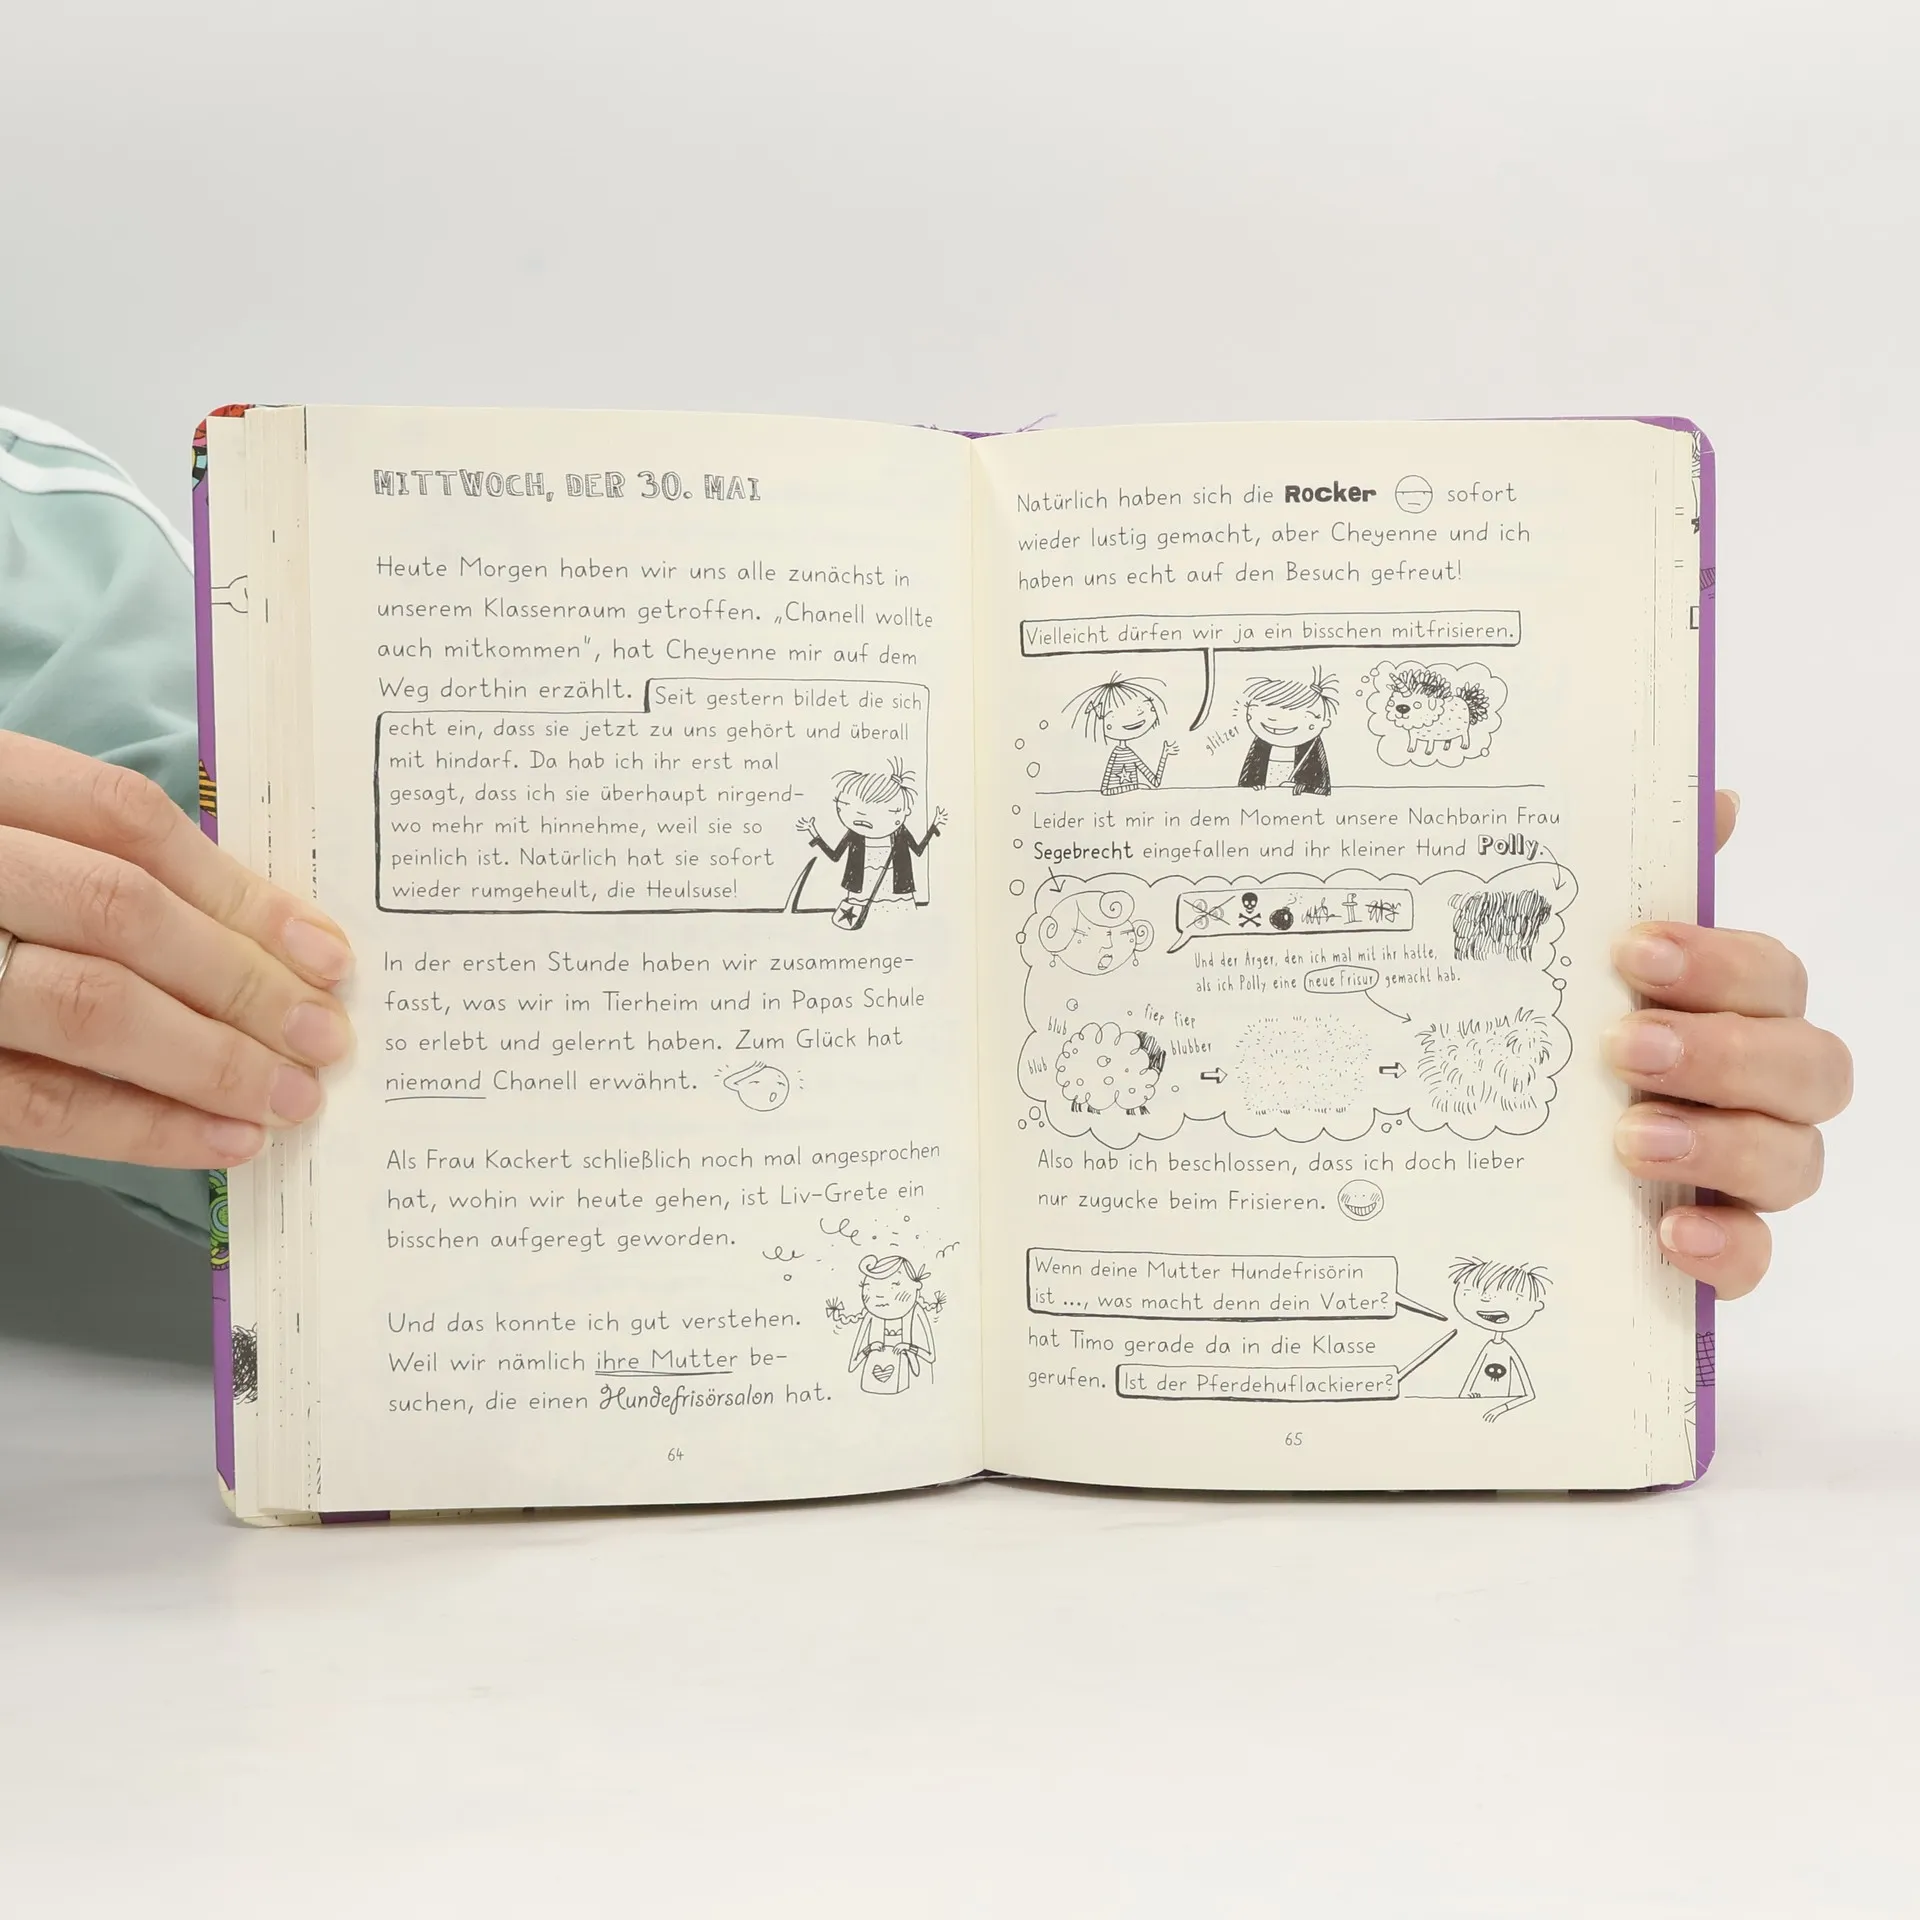 MITTWOCH, DER 30. MAI
Heute Morgen haben wir uns alle zunächst in
unserem Klassenraum getroffen. „Chanell wollte
auch mitkommen", hat Cheyenne mir auf dem
Weg dorthin erzählt. Seit gestern bildet die sich
echt ein, dass sie jetzt zu uns gehört und überall
mit hindarf. Da hab ich ihr erst mal
gesagt, dass ich sie überhaupt nirgend-
wo mehr mit hinnehme, weil sie so
peinlich ist. Natürlich hat sie sofort
wieder rumgeheult, die Heulsuse!
In der ersten Stunde haben wir zusammenge-
fasst, was wir im Tierheim und in Papas Schule
so erlebt und gelernt haben. Zum Glück hat
niemand Chanell erwähnt.
Als Frau Kackert schließlich noch mal angesprochen
hat, wohin wir heute gehen, ist Liv-Grete ein
bisschen aufgeregt geworden.
Und das konnte ich gut verstehen.
Weil wir nämlich ihre Mutter be-
suchen, die einen Hundefrisörsalon hat.
64
Natürlich haben sich die Rocker sofort
wieder lustig gemacht, aber Cheyenne und ich
haben uns echt auf den Besuch gefreut!
Vielleicht dürfen wir ja ein bisschen mitfrisieren.
glitzer
Leider ist mir in dem Moment unsere Nachbarin Frau
Segebrecht eingefallen und ihr kleiner Hund Polly.
Und der Ärger, den ich mal mit ihr hatte,
als ich Polly eine neue Frisur gemacht hab.
blub
fiep fiep
blub
blubber
Also hab ich beschlossen, dass ich doch lieber
nur zugucke beim Frisieren.
Wenn deine Mutter Hundefrisörin
ist ..., was macht denn dein Vater?
hat Timo gerade da in die Klasse
gerufen. Ist der Pferdehuflackierer?
65